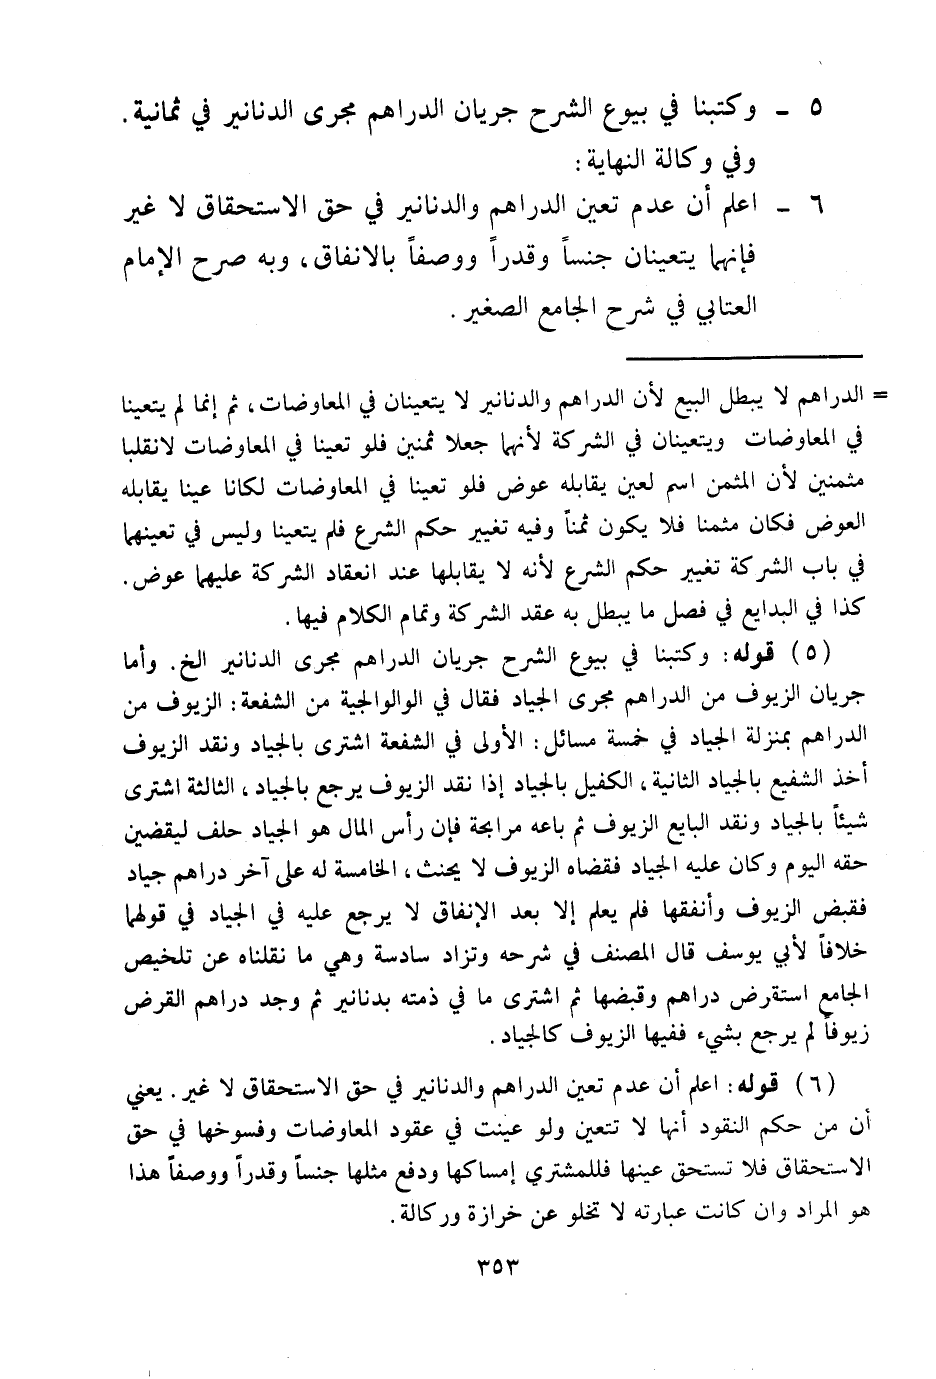 ٥ - وكتبنا في بيوع الشرح جريان الدراهم مجرى الدنانير في ثمانية .
وفي وكالة النهاية :
٦ - اعلم أن عدم تعين الدراهم والدنانير في حق الاستحقاق لا غير
فإنهما يتعينان جنساً وقدراً ووصفاً بالاتفاق، وبه صرح الإمام
العتابي في شرح الجامع الصغير .
= الدراهم لا يبطل البيع لأن الدراهم والدنانير لا يتعينان في المعاوضات، ثم إنما لم يتعينا
في المعاوضات ويتعينان في الشركة لأنهما جعلا ثمنين فلو تعينا في المعاوضات لانقلبا
مثمنين لأن المثمن اسم لعين يقابله عوض فلو تعينا في المعاوضات لكانا عينا يقابله
العوض فكان مثمنا فلا يكون ثمناً وفيه تغيير حكم الشرع فلم يتعينا وليس في تعينهما
في باب الشركة تغيير حكم الشرع لأنه لا يقابلها عند انعقاد الشركة عليهما عوض.
كذا في البدايع في فصل ما يبطل به عقد الشركة وتمام الكلام فيها.
(٥) قوله: وكتبنا في بيوع الشرح جريان الدراهم مجرى الدنانير الخ. وأما
جريان الزيوف من الدراهم مجرى الجياد فقال في الوالوالجية من الشفعة: الزيوف من
الدراهم بمنزلة الجياد في خمسة مسائل: الأولى في الشفعة اشترى بالجياد ونقد الزيوف
أخذ الشفيع بالجياد الثانية، الكفيل بالجياد إذا نقد الزيوف يرجع بالجياد، الثالثة اشترى
شيئاً بالجياد ونقد البايع الزيوف ثم باعه مرابحة فإن رأس المال هو الجياد حلف ليقضين
حقه اليوم وكان عليه الجياد فقضاه الزيوف لا يحنث، الخامسة له على آخر دراهم جياد
فقبض الزيوف وأنفقها فلم يعلم إلا بعد الإنفاق لا يرجع عليه في الجياد في قولهما
خلافاً لأبي يوسف قال المصنف في شرحه وتزاد سادسة وهي ما نقلناه عن تلخيص
الجامع استقرض دراهم وقبضها ثم اشترى ما في ذمته بدنانير ثم وجد دراهم القرض
زيوفاً لم يرجع بشيء ففيها الزيوف كالجياد.
(٦) قوله: اعلم أن عدم تعين الدراهم والدنانير في حق الاستحقاق لا غير. يعني
أن من حكم النقود أنها لا تتعين ولو عينت في عقود المعاوضات وفسوخها في حق
الاستحقاق فلا تستحق عينها فللمشتري إمساكها ودفع مثلها جنساً وقدراً ووصفاً هذا
هو المراد وان كانت عبارته لا تخلو عن خرازة وركالة.
٣٥٣